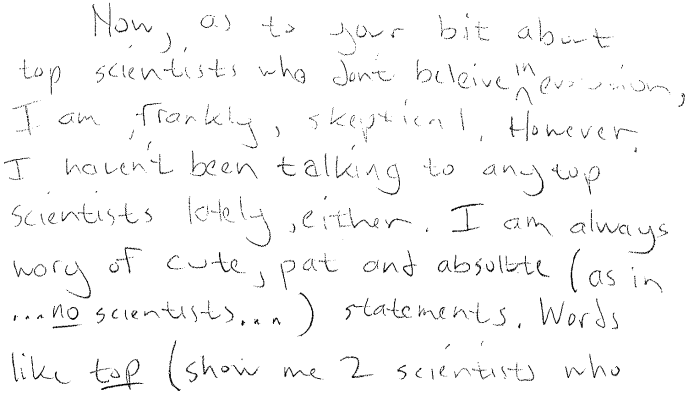 Now, as to your bit about
top scientists who don't beleive in evolution,
I am, frankly, skeptical. However,
I haven't been talking to any top
scientists lately, either. I am always
wary of cute, pat and absolute (as in
...no scientists...) statements. Words
like top (show me 2 scientists who